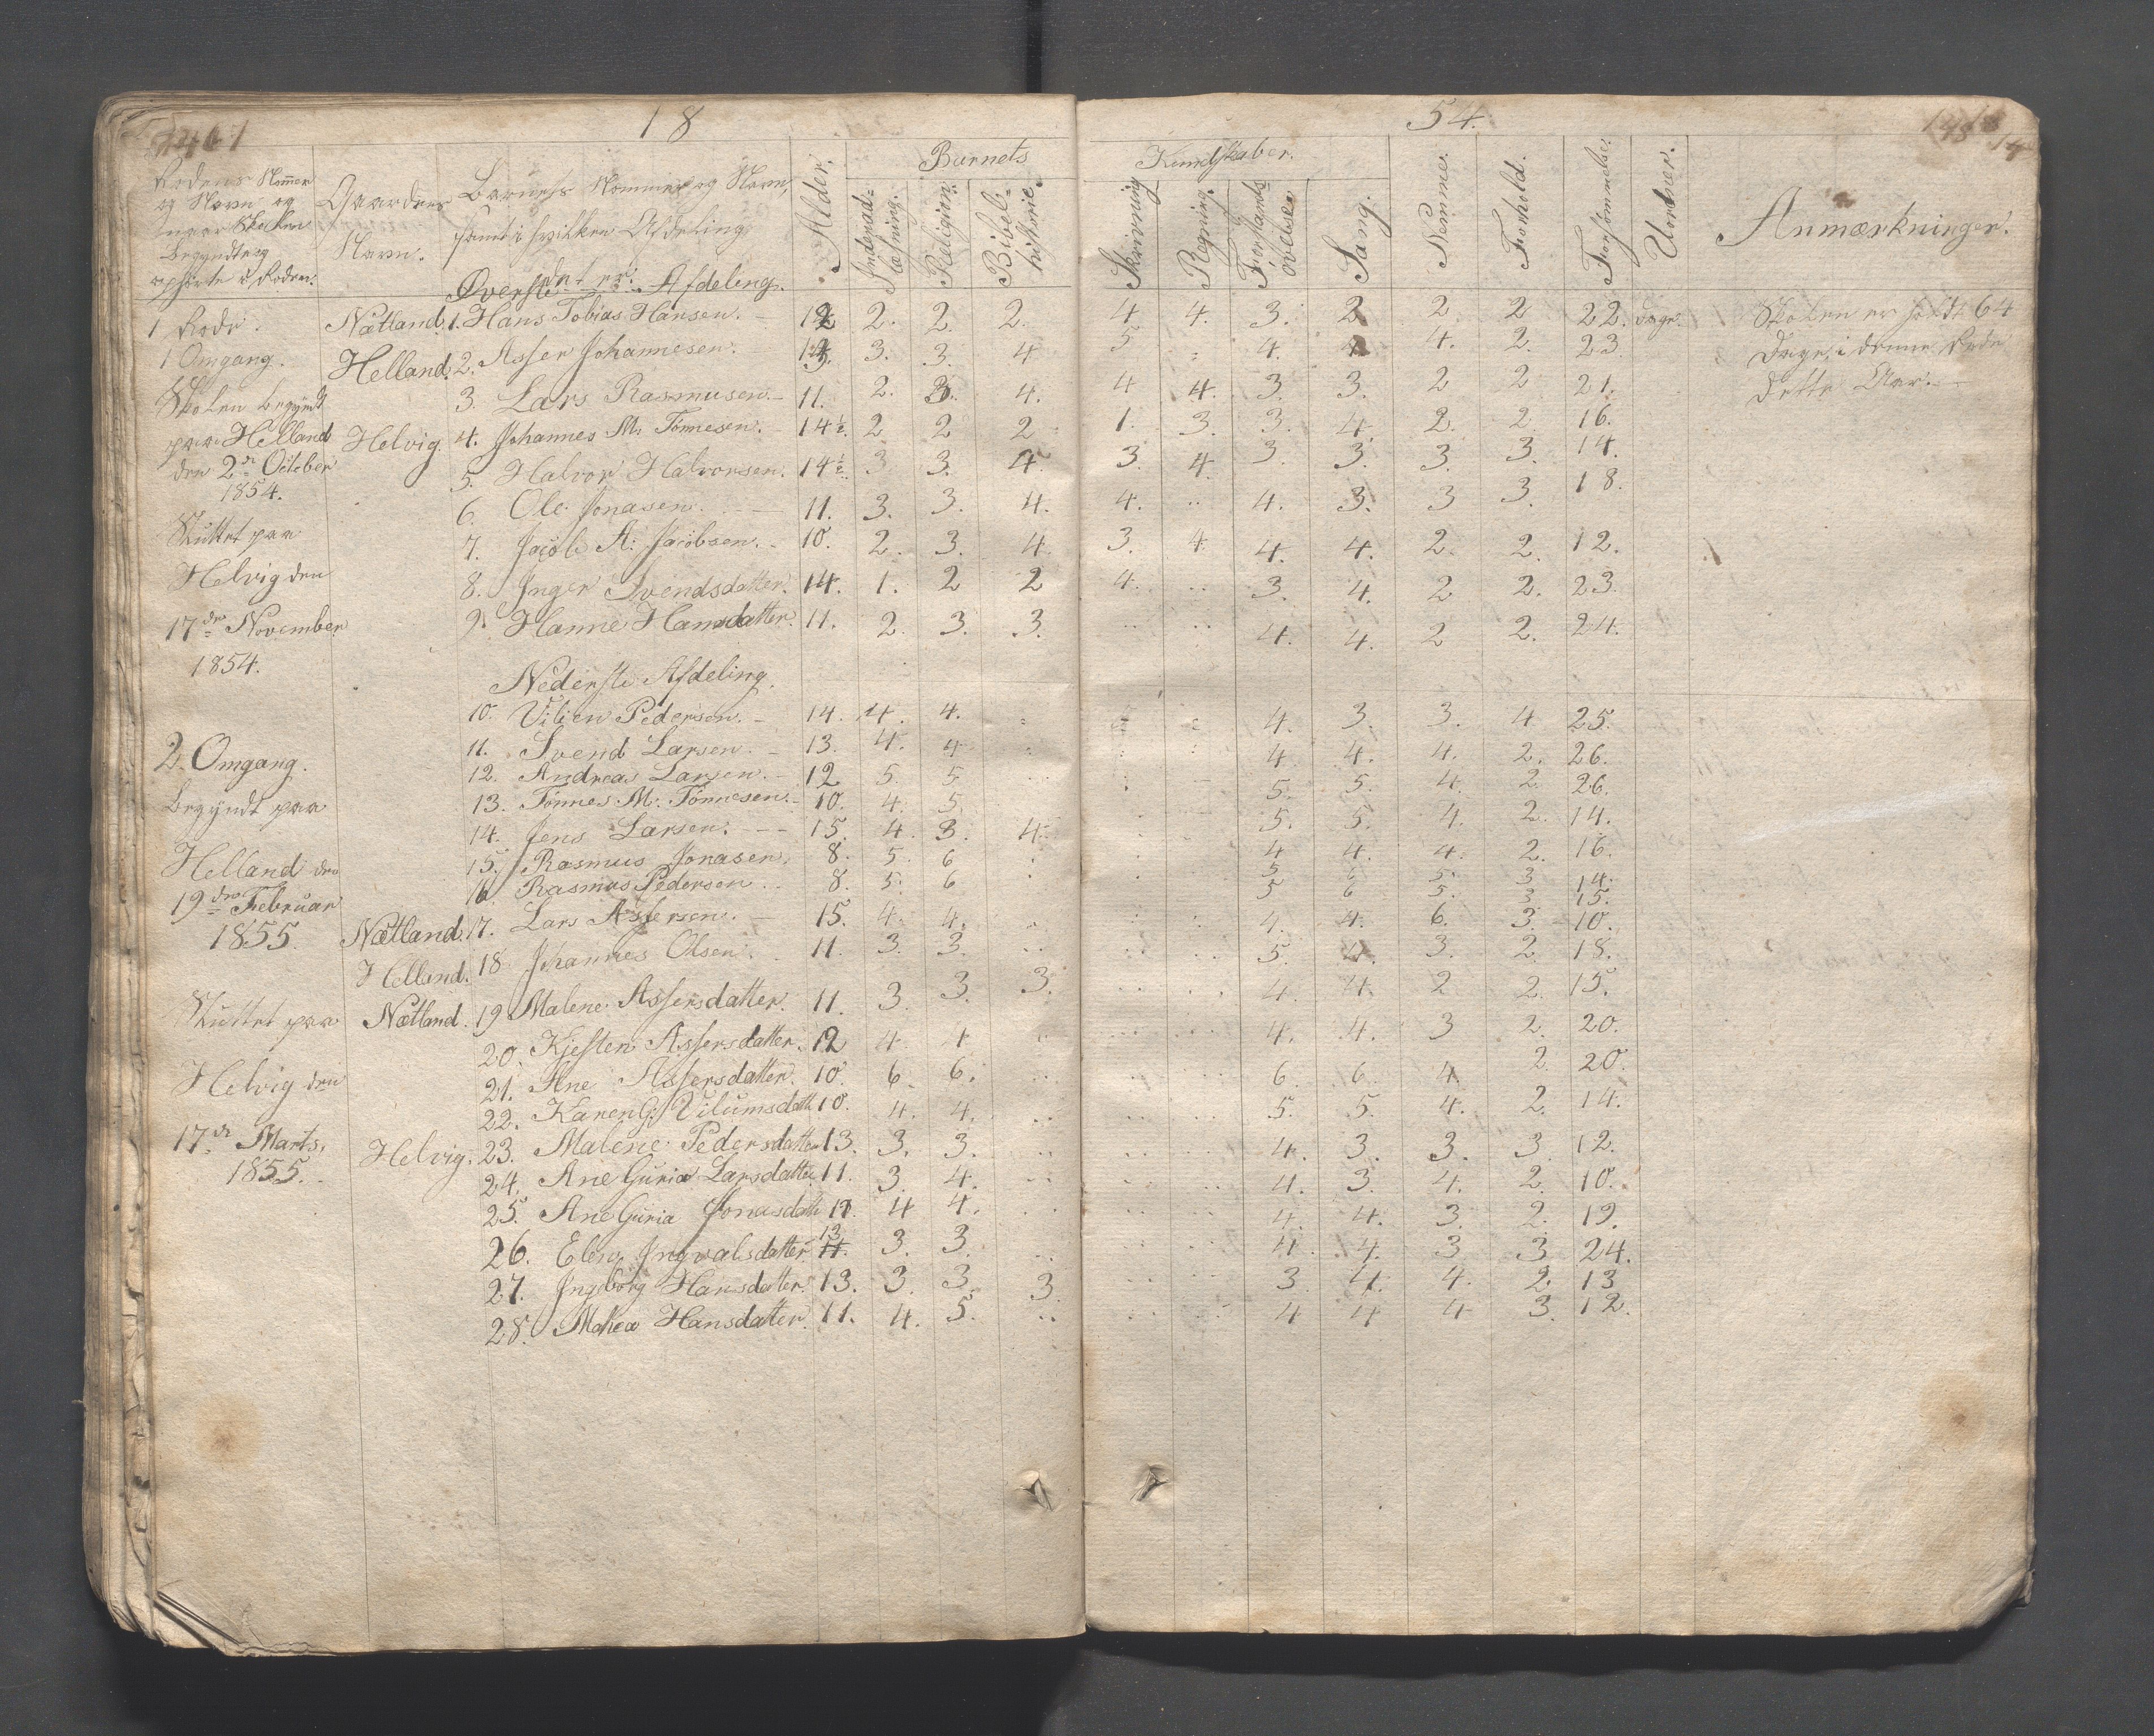 18 54.
Rodens Nommer og Navn og naar Skolen begyndte og ophørte i Roden.
Gaardens Navn.
Barnets Nommer og Navn, samt i hvilken Afdeling det er.
Alder.
Barnets Kundskaber.
Indenad-læsning. Religion. Bibel-historie. Skrivning Regning. Forstands øvelse. Sang. Nemme. Forhold. Forsømmelse. Uordner. Anmærkninger.
Øverste Afdeling.
1 Rode. Nætland. 1. Hans Tobias Hansen. 12 2. 2. 2. 4 4. 3. 2 2. 2 22. Dage. Skolen er holdt 64
1 Omgang. Helland. 2. Asser Johannesen. 3. 3. 4 5 4. 4. 2. 23. Dage i denne Rode
Skolen begyndt 3. Lars Rasmusen. 11. 2. 3. 4. 4 4. 3. 3. 2 2 21. dette Aar.
paa Helland Helvig. 4. Johannes M. Tønnesen. 14½. 2 2 2 1. 3. 3. 4. 2. 2. 16.
den 2den October 5. Halvor Halvorsen. 14½. 3 3. 4. 3. 4. 3. 3. 3. 3. 14.
1854. 6. Ole Jonasen. 11. 3. 3. 4. 4. 4. 3. 3 3. 18.
Sluttet paa 7. Jacob A. Jacobsen. 10. 2. 3. 4. 3. 4. 4. 4. 2. 2. 12.
Helvig den 8. Inger Svendsdatter. 14. 1. 2 2 4. 3. 4. 2 2. 23.
17de November 9. Hanne Hansdatter. 11. 2. 3. 3. 4. 4. 2 2. 24.
1854.
Nederste Afdeling.
10. Vilien Pedersen. 14. 4. 4. 4. 3. 3. 4 25.
2 Omgang. 11. Svend Larsen. 13. 4. 4 4 4. 4. 2. 26.
12. Andreas Larsen. 12 5. 5. 5. 5. 4. 2. 26.
Begyndt paa 13. Tønnes M. Tønnesen. 10. 4. 5. 5. 5. 4. 2. 14.
14. Jens Larsen. 15. 4. 3. 4. 4 4. 4. 2. 16.
Helland den 15. Rasmus Jonasen. 8. 5. 6 5 5. 3 14.
19den Februar 16. Rasmus Pedersen. 8. 5. 6 5 6 5. 3 15.
1855. Nætland. 17. Lars Assersen. 15. 4. 4. 4. 4. 6. 3. 10.
Helland. 18 Johannes Olsen. 11. 3. 3. 5. 4. 3. 2. 18.
Sluttet paa Nætland. 19 Malene Assersdatter. 11. 3. 3. 3. 4. 4. 2 2. 15.
20. Kjesten Assersdatter. 12 4. 4 4. 4. 3 2. 20.
Helvig den 21. Ane Assersdatter. 10. 6. 6. 6. 6. 4. 2. 20.
22. Karen G. Vilumsdatt 10. 4. 4. 5. 5. 4. 2. 14.
17de Marts. Helvig. 23. Malene Pedersdatter 13. 3. 3. 4. 3. 3. 3. 12.
1855. 24. Ane Guria Larsdatter 11. 3. 4. 4. 3. 4. 2. 10.
25. Ane Guria Jonasdatt 4 4. 4. 4. 3. 2. 19.
26. Eleng Ingvalsdatter 13 3. 3. 4. 4. 3. 3. 24.
27. Ingeborg Hansdatter. 13. 3. 3. 3. 3 4. 4. 2. 13
28. Hansdatter. 11. 4. 5. 4 4 4 3. 12.